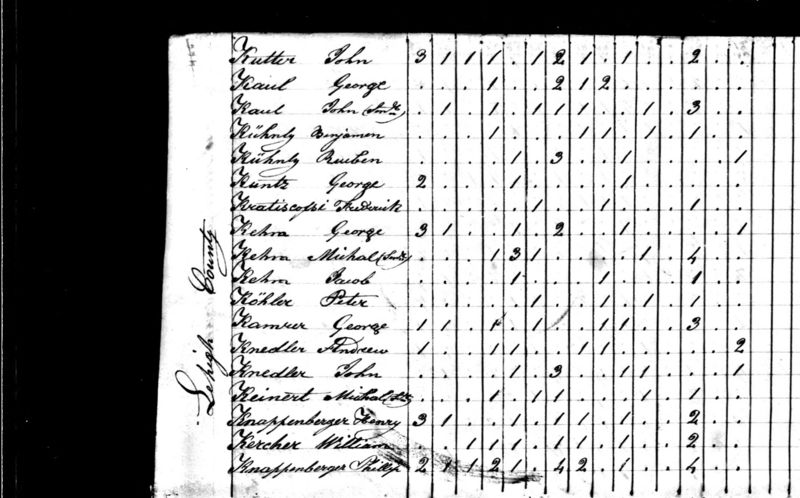 Lehigh County
Kutter John 3 1 1 1 . 1 2 1 . 1 . . 2 . .
Kaul George . . . 1 . . 2 1 2 . . . . . .
Kaul John . 1 . 1 . 1 1 1 . . 1 . 3 . .
Kühnly Benjamen . . . 1 . . . 1 1 . 1 . 1 . .
Kühnly Rueben . . . . 1 . 3 . . 1 . . . . 1
Kuntz George 2 . . . 1 . . . . 1 . . . . .
Frederick . . . . . 1 . . 1 . . . 1 . .
Kehm George 3 1 . . 1 . 2 . . 1 . . . . 1
Kehm Michal . . . 1 3 1 . . . . 1 . 4 . .
Kehm Jacob . . . . 1 . . . 1 . . . 1 . .
Köhler Peter . . . . . 1 . . 1 . 1 . 1 . .
Kamrer George 1 1 . 1 . 1 . . 1 1 . . 3 . .
Knedler Andrew 1 . . 1 1 . . 1 1 . . . . . 2
Knedler John . . . . 1 . 3 . . 1 1 . . . 1
Keinert Michal . . . 1 . 1 1 . . . 1 . 1 . .
Knappenberger Henry 3 1 . . 1 . 1 1 . 1 . . 2 . .
Kercher William . . 1 1 1 . 1 1 . 1 . . 2 . .
Knappenberger Phillip 2 1 1 2 1 . 4 2 . 1 . . 4 . .